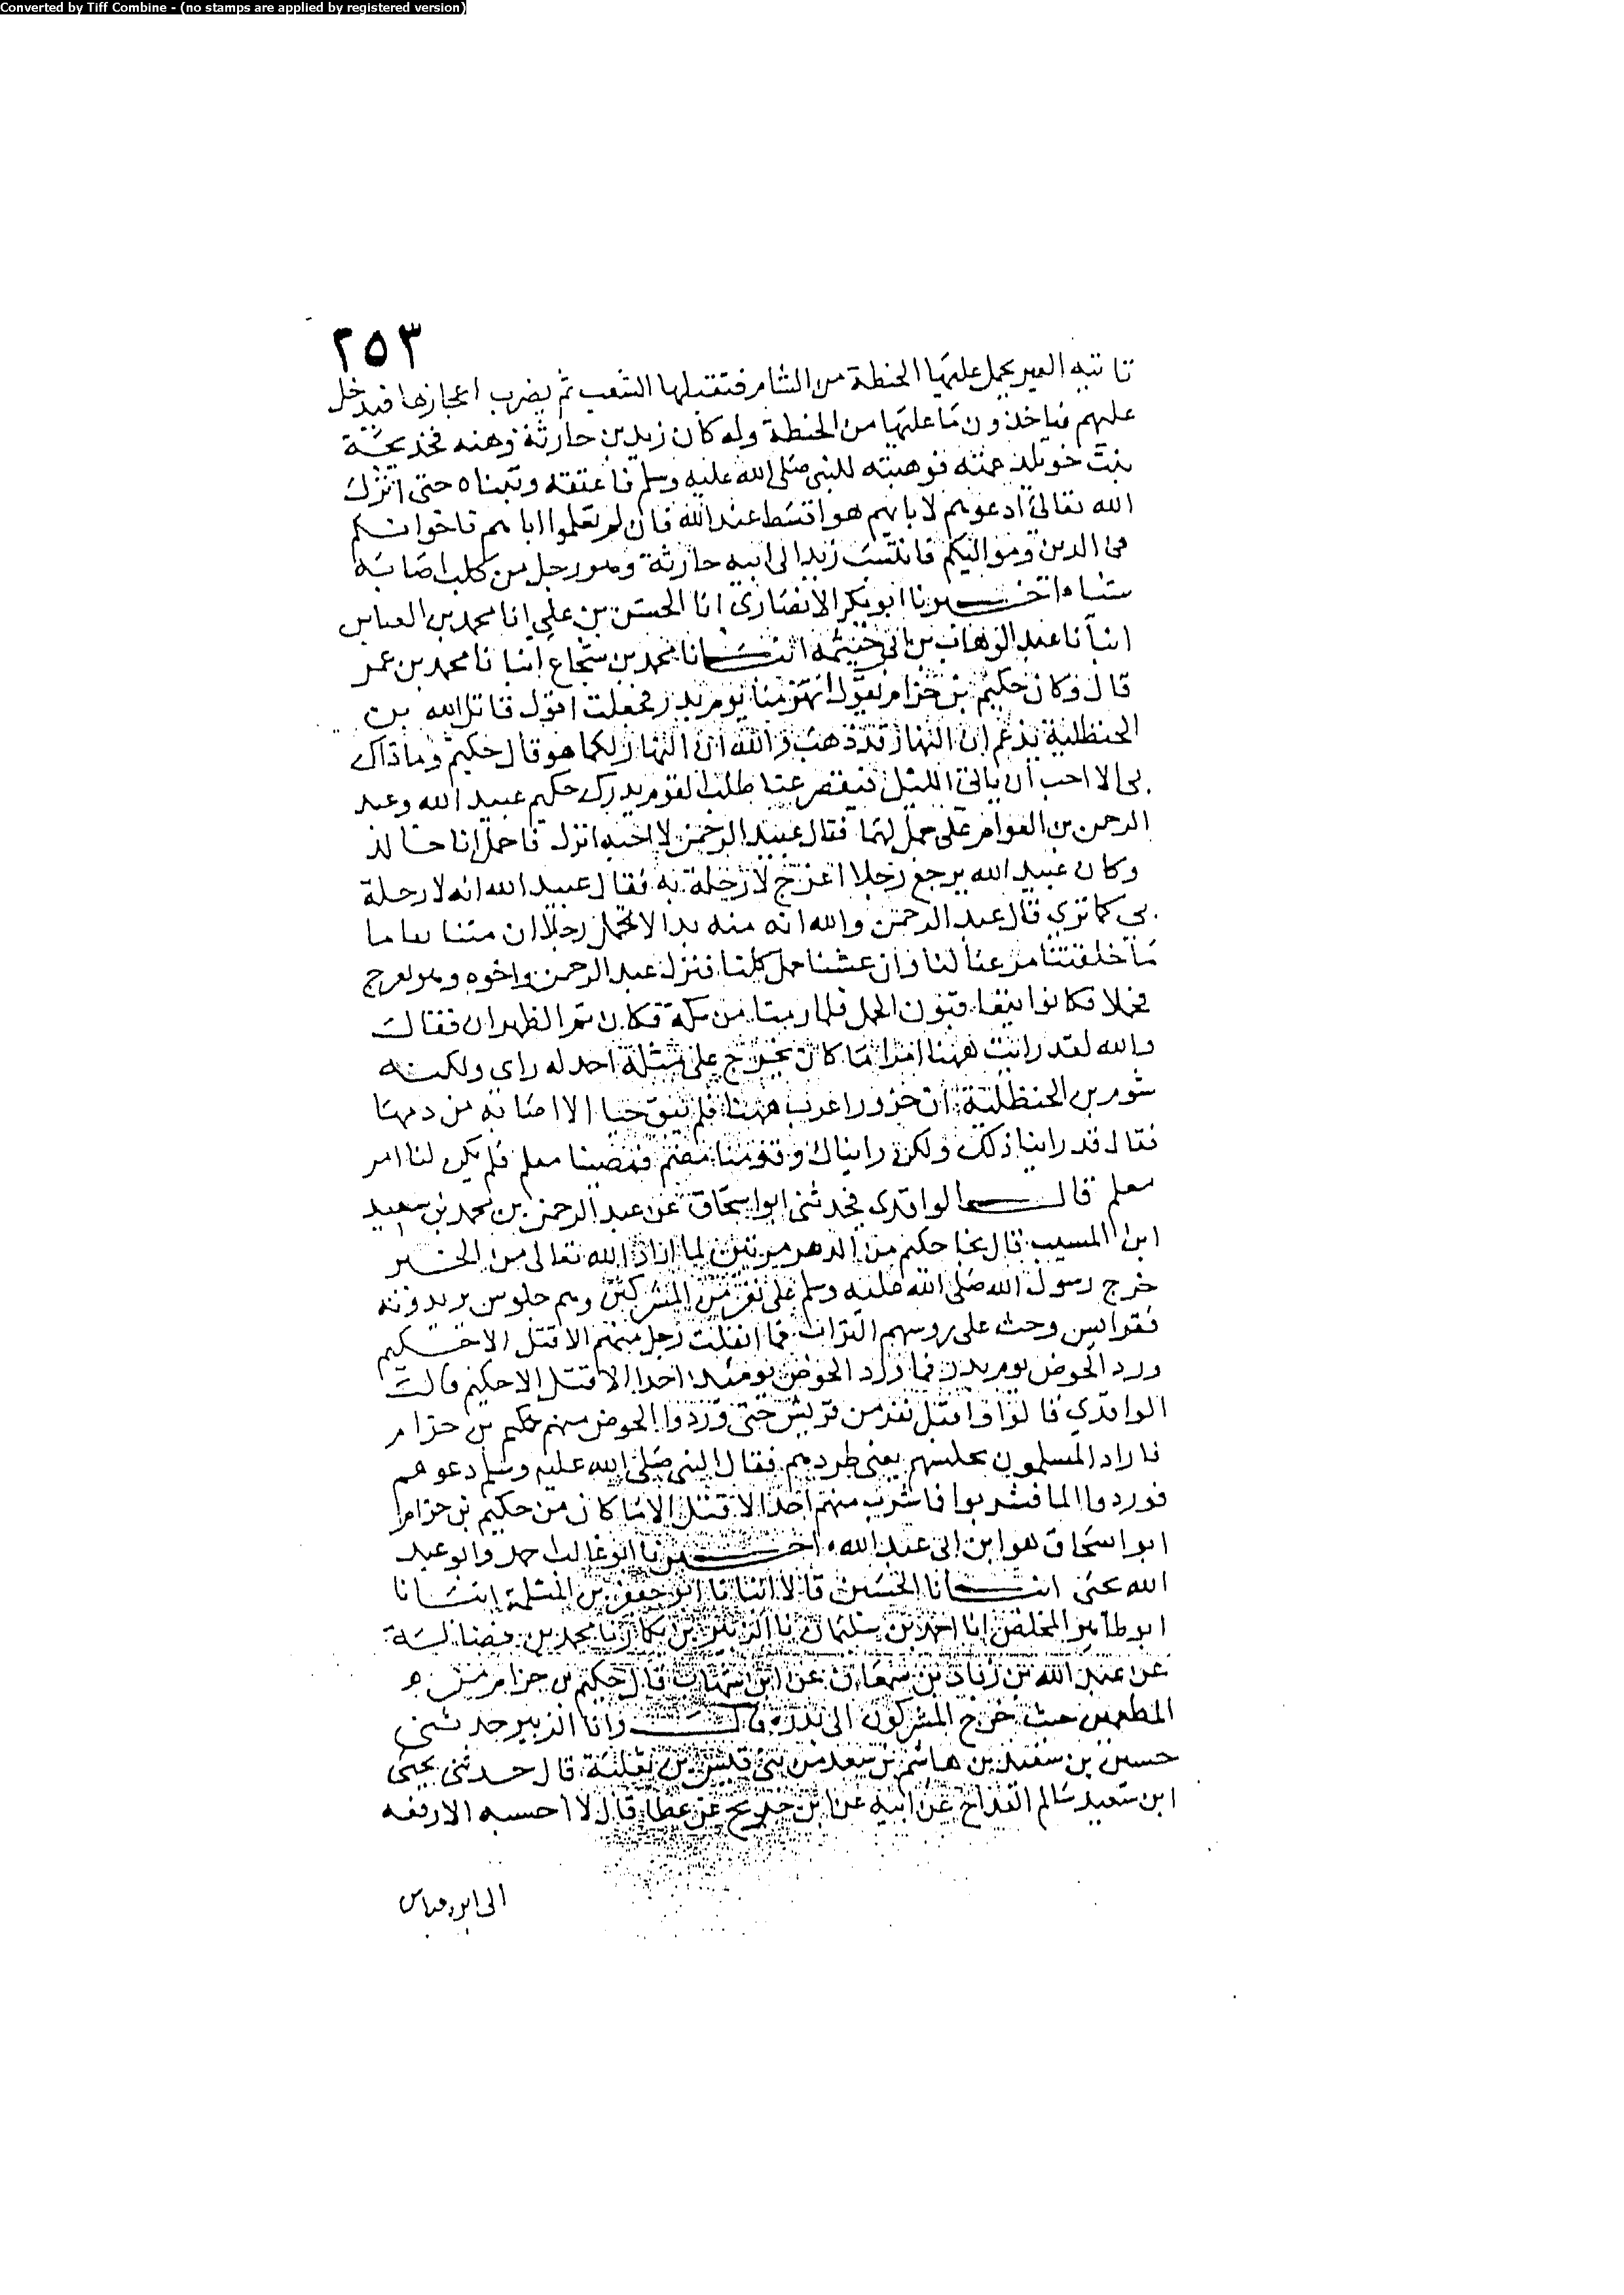 Converted by Tiff Combine - (no stamps are applied by registered version)
٢٥٣
تاتيه العير يحمل عليها الحنطة من الشام فتقبلها الشعب ثم يضرب اعجازها فيدخل
عليهم فياخذون ما عليها من الحنطة وله كان زيد بن حارثة وهبه خديجة
بنت خويلد عمته فوهبته للنبي صلى الله عليه وسلم فاعتقه وتبناه حتى انزل
الله تعالى ادعوهم لابايهم هو اقسط عند الله فان لم تعلموا اباهم فاخوانكم
في الدين ومواليكم فانتسب زيد الى ابيه حارثة وهو رجل من كلب اصابه
سباء اخبرنا ابو بكر الانصاري انا الحسن بن علي انا محمد بن العباس
انبانا عبد الوهاب بن ابي حية انبانا محمد بن شجاع انبانا محمد بن عمر
قال وكان حكيم بن حزام يقول انهزمنا يوم بدر فجعلت اقول قاتل الله بن
الحنظلية يزعم ان النهار قد ذهب والله ان النهار لكما هو قال حكيم وما ذاك
بي الا احب ان ياتي الليل فيقصر عنا طلب القوم يدرك حكيم عبيد الله وعبد
الرحمن بن العوام على جمل لهما فقال عبد الرحمن لاخيه انزل فاحمل ابا خالد
وكان عبيد الله رجلا اعرج لا رجلة به فقال عبيد الله انه لا رحلة
بي كما ترى قال عبد الرحمن والله انه منه بد الا نحمل رجلا ان متنا
ما خلفتنا من عنا لنا وان عشنا حمل كلنا فنزل عبد الرحمن واخوه وهو اعرج
فحملا فكانوا يتعاقبون الجمل فلما دنا من مكة فكان بمر الظهران فقال
والله لقد رايت ههنا امرا ما كان يخرج على مثله احد له راي ولكنه
شوم بن الحنظلية ان جزورا نحرت ههنا فلم يبق خبا الا اصابه من دمها
فقال قد راينا ذلك ولكن رايناك وقومنا مضيتم فمضينا معكم فلم يكن لنا امر
معكم قال الواقدي فحدثني ابو اسحاق عن عبد الرحمن بن محمد بن سعيد
ابن المسيب قال نجا حكيم من الدهر مرتين لما اراد الله تعالى من الخير
خرج رسول الله صلى الله عليه وسلم على نفر من المشركين وهم جلوس يريدونه
فقرا يس وحث على روسهم التراب فما انفلت رجل منهم الا قتل الا حكيم
ورد الحوض يوم بدر فما ورد الحوض يومئذ احد الا قتل الا حكيم قال
الواقدي قالوا واقبل نفر من قريش حتى وردوا الحوض منهم حكيم بن حزام
فاراد المسلمون يعني طردهم فقال النبي صلى الله عليه وسلم دعوهم
فوردوا الما فشربوا فما شرب منهم احد الا قتل الا ما كان من حكيم بن حزام
ابو اسحاق هو ابن ابي عبد الله اخبرنا ابو غالب احمد وابو عبد
الله يحيى انبانا الحسن قالا انبانا ابو جعفر بن المسلمة انبانا
ابو طاهر المخلص انا احمد بن سليمان نا الزبير بن بكار نا محمد بن فضالة
عن عبد الله بن زياد بن سمعان عن ابن شهاب قال حكيم بن حزام من
المطعمين حيث خرج المشركون الى بدر قال وانا الزبير حدثني
حسين بن سعيد بن هاشم بن سعد من بني قيس بن ثعلبة قال حدثني يحيى
ابن سعيد سالم القداح عن ابيه عن ابن جريج عن عطا قال لا احسبه الا رفعه
الى ابن عباس